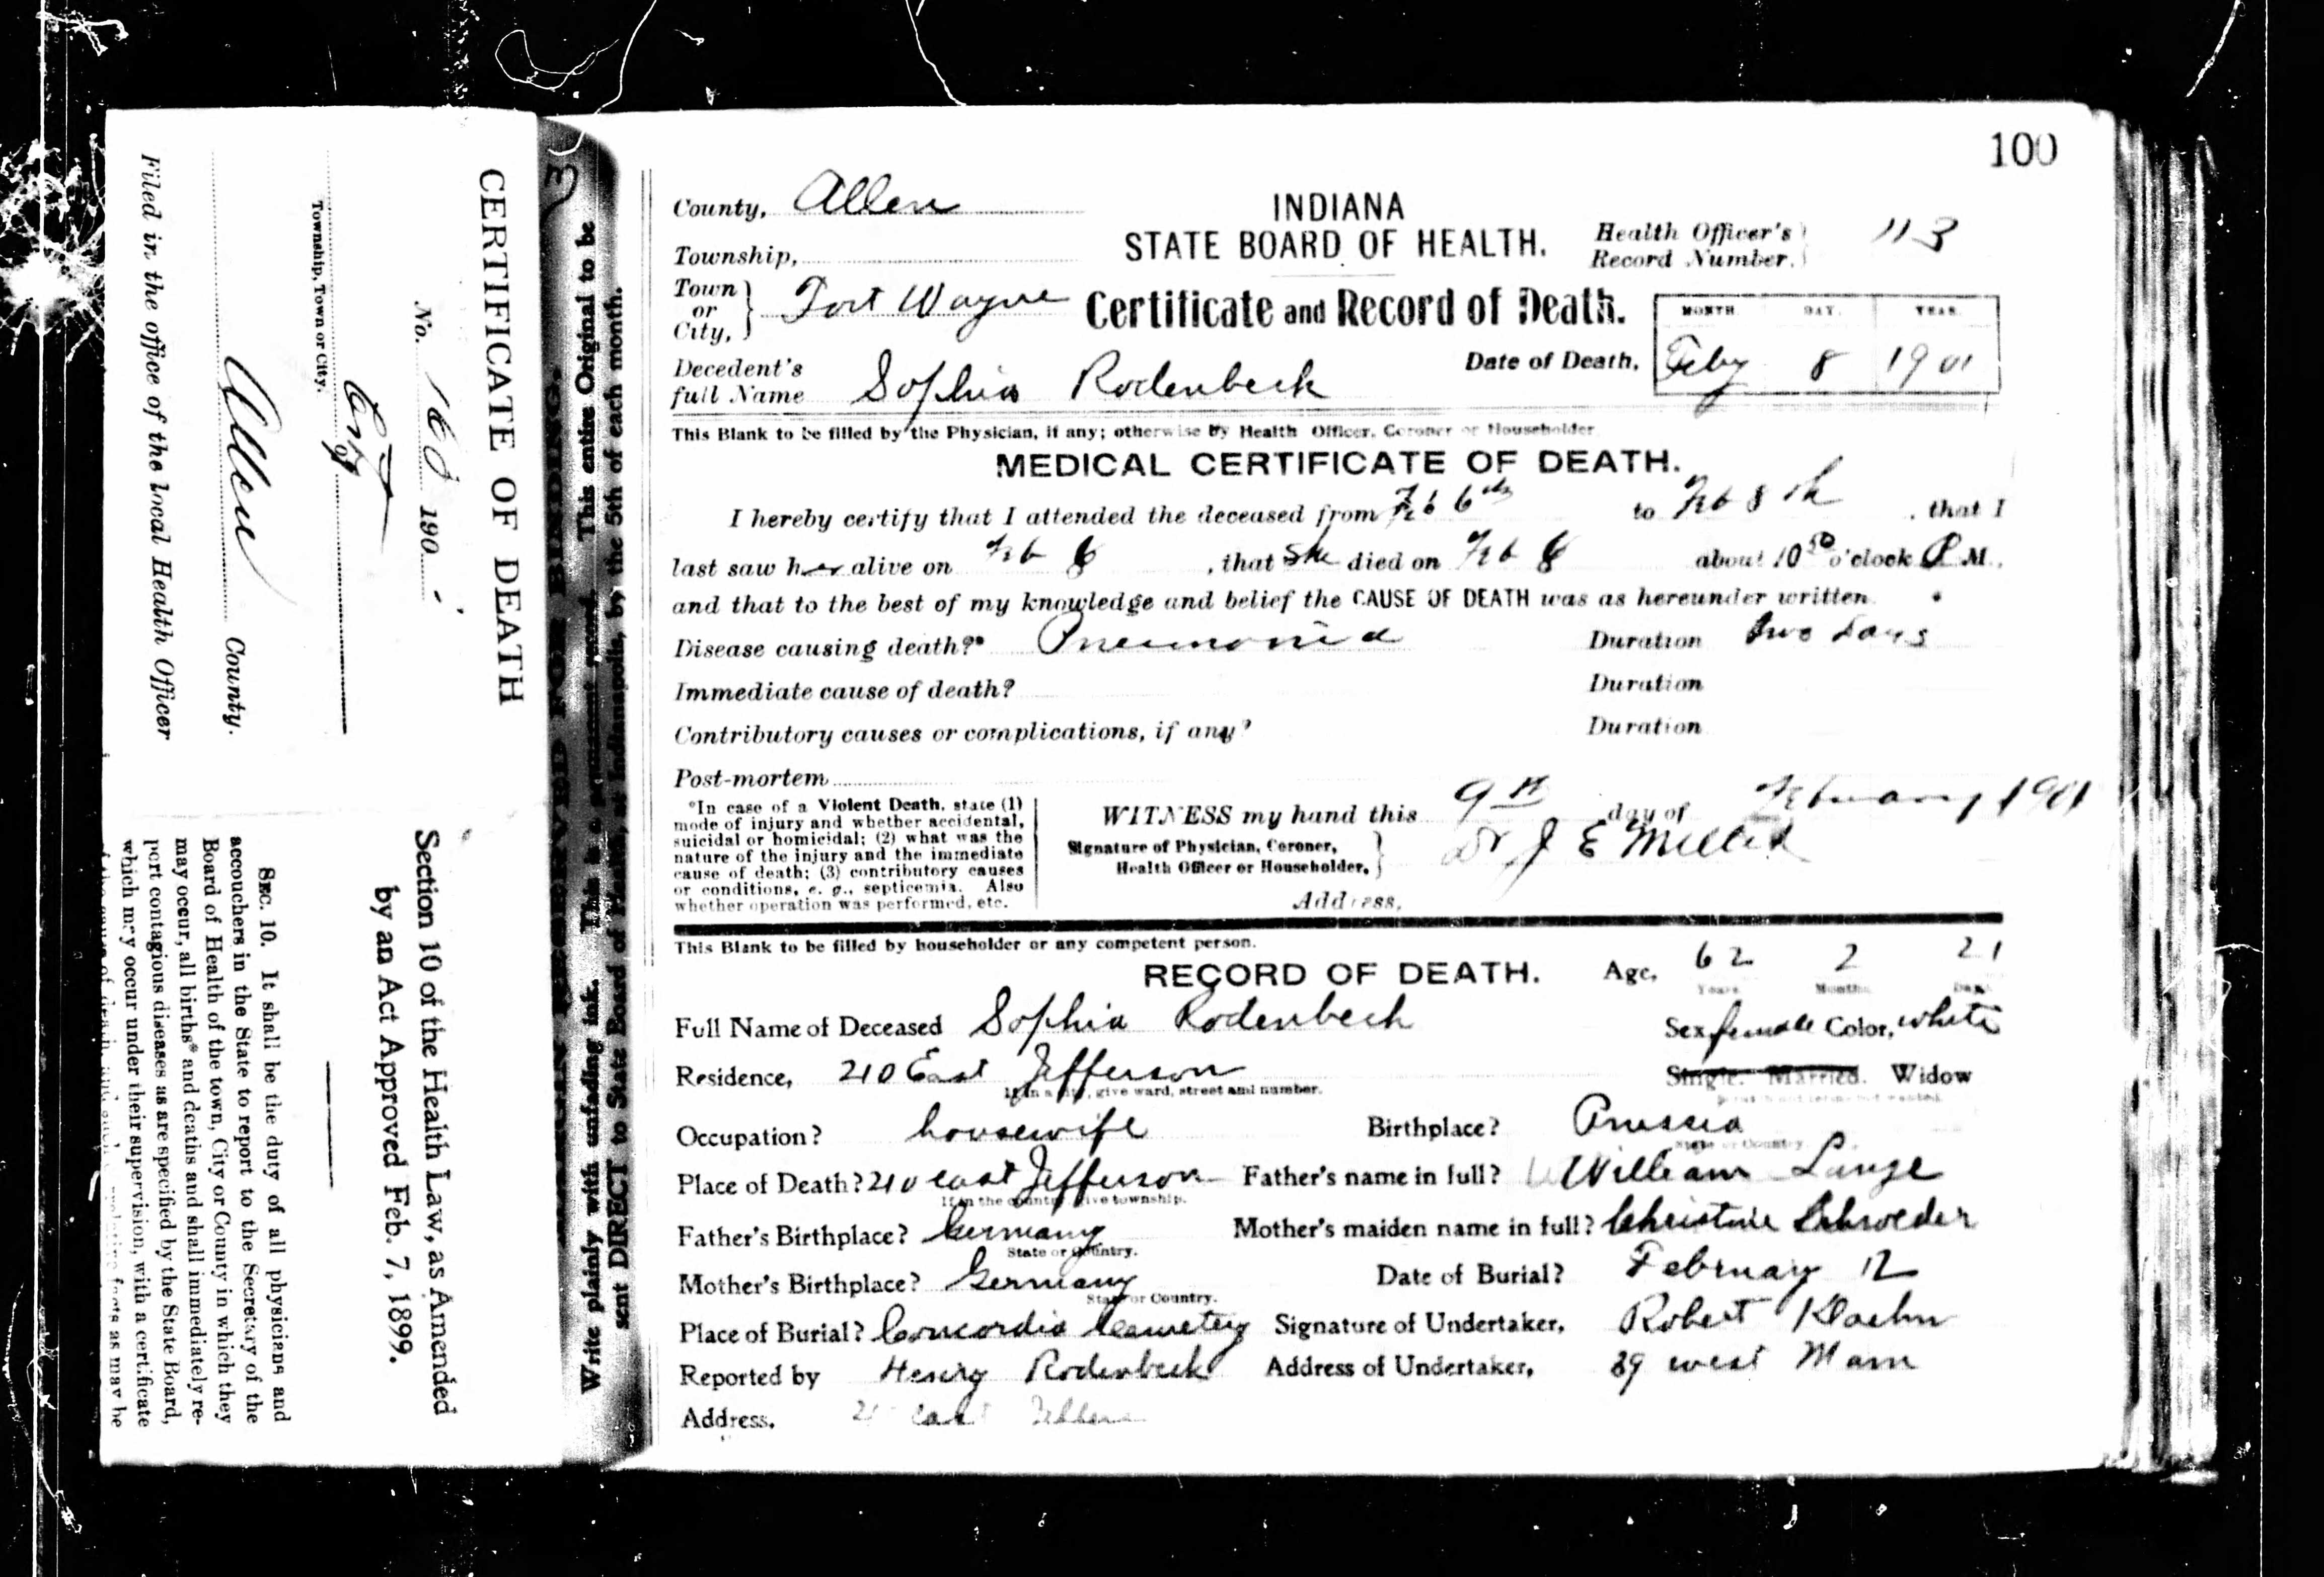 100
County, Allen
INDIANA
STATE BOARD OF HEALTH.
Health Officer's
Record Number.
113
Township,
Town
or
City,
Fort Wayne
Certificate and Record of Death.
MONTH DAY. YEAR
Date of Death, Feby 8 1901
Decedent's
full Name
Sophia Rodenbeck
This Blank to be filled by the Physician, if any; otherwise by Health Officer, Coroner or Householder
MEDICAL CERTIFICATE OF DEATH.
I hereby certify that I attended the deceased from Feb 6th to Feb 8th, that I
last saw her alive on Feb 8, that She died on Feb 8 about 10 50 o'clock P M.,
and that to the best of my knowledge and belief the CAUSE OF DEATH was as hereunder written.
Disease causing death?* Pneumonia Duration two days
Immediate cause of death? Duration
Contributory causes or complications, if any? Duration
Post-mortem
*In case of a Violent Death, state (1)
mode of injury and whether accidental,
suicidal or homicidal; (2) what was the
nature of the injury and the immediate
cause of death; (3) contributory causes
or conditions, e. g., septicemia. Also
whether operation was performed, etc.
WITNESS my hand this 9th day of February 1901
Signature of Physician, Coroner,
Health Officer or Householder,
Dr J E
Address,
This Blank to be filled by householder or any competent person.
RECORD OF DEATH. Age, 62 2 21
Years Months Days
Full Name of Deceased Sophia Rodenbeck Sex female Color, white
Residence, 210 East Jefferson Single. Married. Widow
If in a city, give ward, street and number.
Occupation? housewife Birthplace? Prussia
State or Country
Place of Death? 210 east Jefferson Father's name in full? William Lange
If in the country give township.
Father's Birthplace? Germany Mother's maiden name in full? Christine Schroeder
State or Country.
Mother's Birthplace? Germany Date of Burial? February 12
State or Country.
Place of Burial? Concordia Cemetery Signature of Undertaker, Robert Klaehn
Reported by Henry Rodenbeck Address of Undertaker, 39 west Main
Address, east
Write plainly with unfading ink. This entire Original to be
sent DIRECT to State Board of Health, at Indianapolis, by the 5th of each month.
CERTIFICATE OF DEATH
No. 190
City
Township, Town or City.
Allen County.
Filed in the office of the local Health Officer
Section 10 of the Health Law, as Amended
by an Act Approved Feb. 7, 1899.
SEC. 10. It shall be the duty of all physicians and
accouchers in the State to report to the Secretary of the
Board of Health of the town, City or County in which they
may occur, all births* and deaths and shall immediately re-
port contagious diseases as are specified by the State Board,
which may occur under their supervision, with a certificate